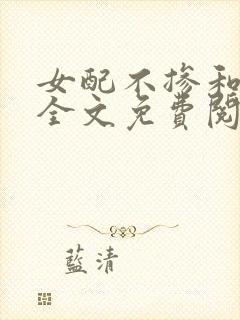 女配不摻和
全文免費閱
藍清